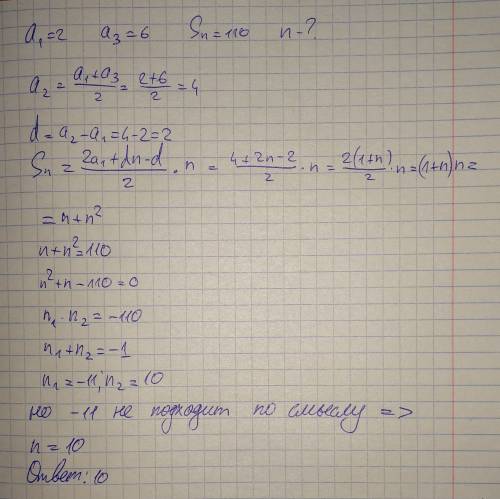 a₁=2 a₃=6 Sₙ=110 n-?
a₂ = (a₁+a₃)/2 = (2+6)/2 = 4
d = a₂-a₁ = 4-2 = 2
Sₙ = (2a₁+dn-d)/2 · n = (4+2n-2)/2 · n = 2(1+n)/2 · n = (1+n)n =
= n+n²
n+n²=110
n²+n-110=0
n₁·n₂=-110
n₁+n₂=-1
n₁=-11; n₂=10
но -11 не подходит по смыслу =>
n=10
Ответ: 10